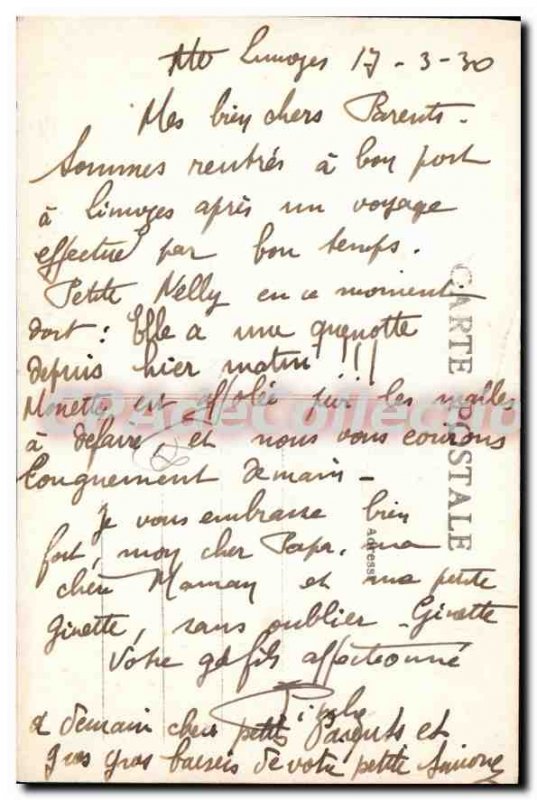 Limoges 17-3-30
Mes bien chers Parents.
Sommes rentrés à bon port
à Limoges après un voyage
effectué par bon temps.
Petite Nelly en ce moment
dort : Elle a une quenotte
depuis hier matin !!!
est affolée par les malles
à défaire, et nous vous écrirons
longuement demain -
Je vous embrasse bien
fort, mon cher Papa, ma
chère Maman et ma petite
Ginette, sans oublier Ginette
Votre gd fils affectionné
à demain chers petits Parents et
gros gros baisers de votre petite Simone
CARTE POSTALE
Adresse